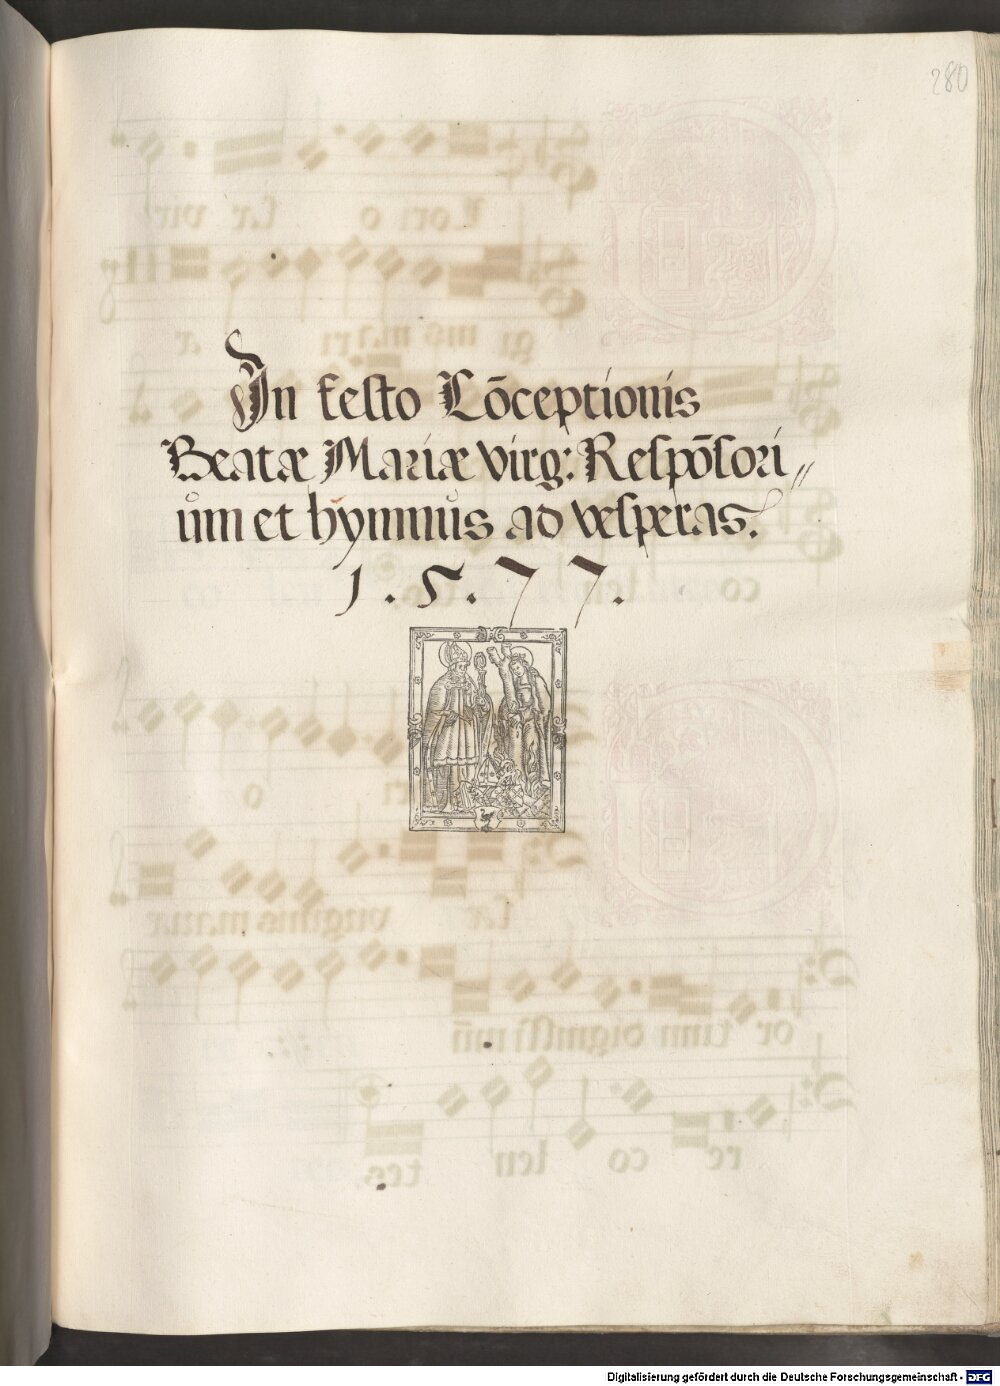 280
In festo Cōceptionis
Beatæ Mariæ Virg: Respōsori„
um et hymnus ad vesperas.
1.5.77.
Digitalisierung gefördert durch die Deutsche Forschungsgemeinschaft - DFG